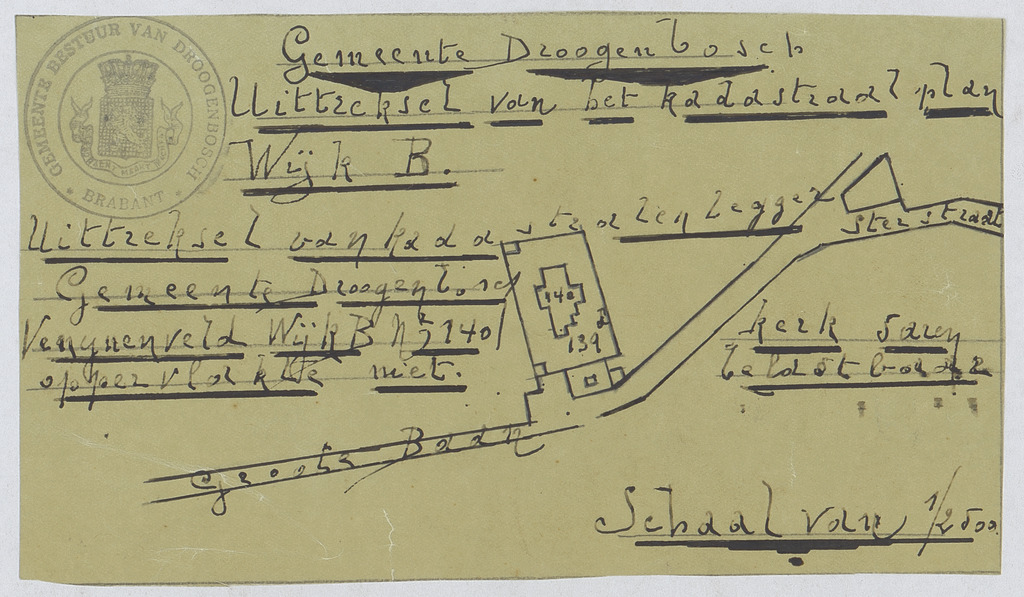 GEMEENTE BESTEUR VAN DROOGENBOSCH
BRABANT
Gemeente Droogenbosch
Uittreksel van het kadastraal plan
Wijk B.
Uittreksel van kadastralen legger
Gemeente Droogenbosch
Wijk B Nr 140
oppervlakte niet.
140
139
sterstraat
kerk
Groote Baan
Schaal van 1/2500